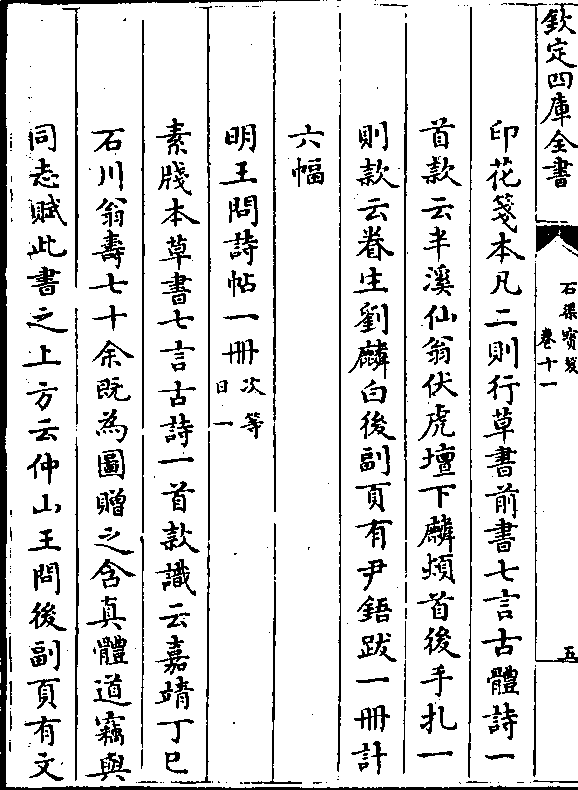 欽定四庫全書
石渠寳笈
卷十一
五
印花箋本凡二則行草書前書七言古體詩一
首款云半溪仙翁伏虎壇下麟頓首後手扎一
則款云眷生劉麟白後副頁有尹鋙跋一冊計
六幅
明王問詩帖一冊次等
日一
素牋本草書七言古詩一首款識云嘉靖丁巳
石川翁壽七十余既為圖贈之含真體道竊與
同志賦此書之上方云仲山王問後副頁有文